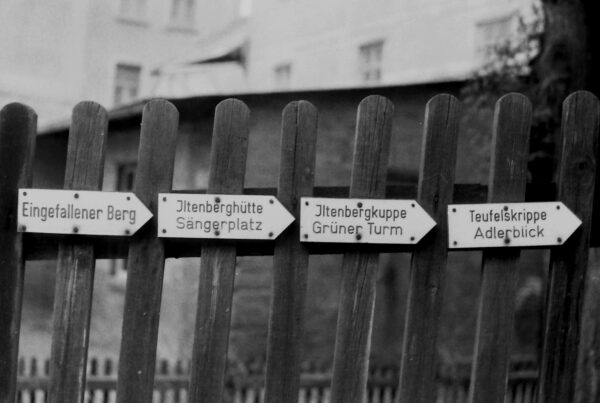 Eingefallener Berg
Jltenberghütte
Sängerplatz
Jltenbergkuppe
Grüner Turm
Teufelskrippe
Adlerblick